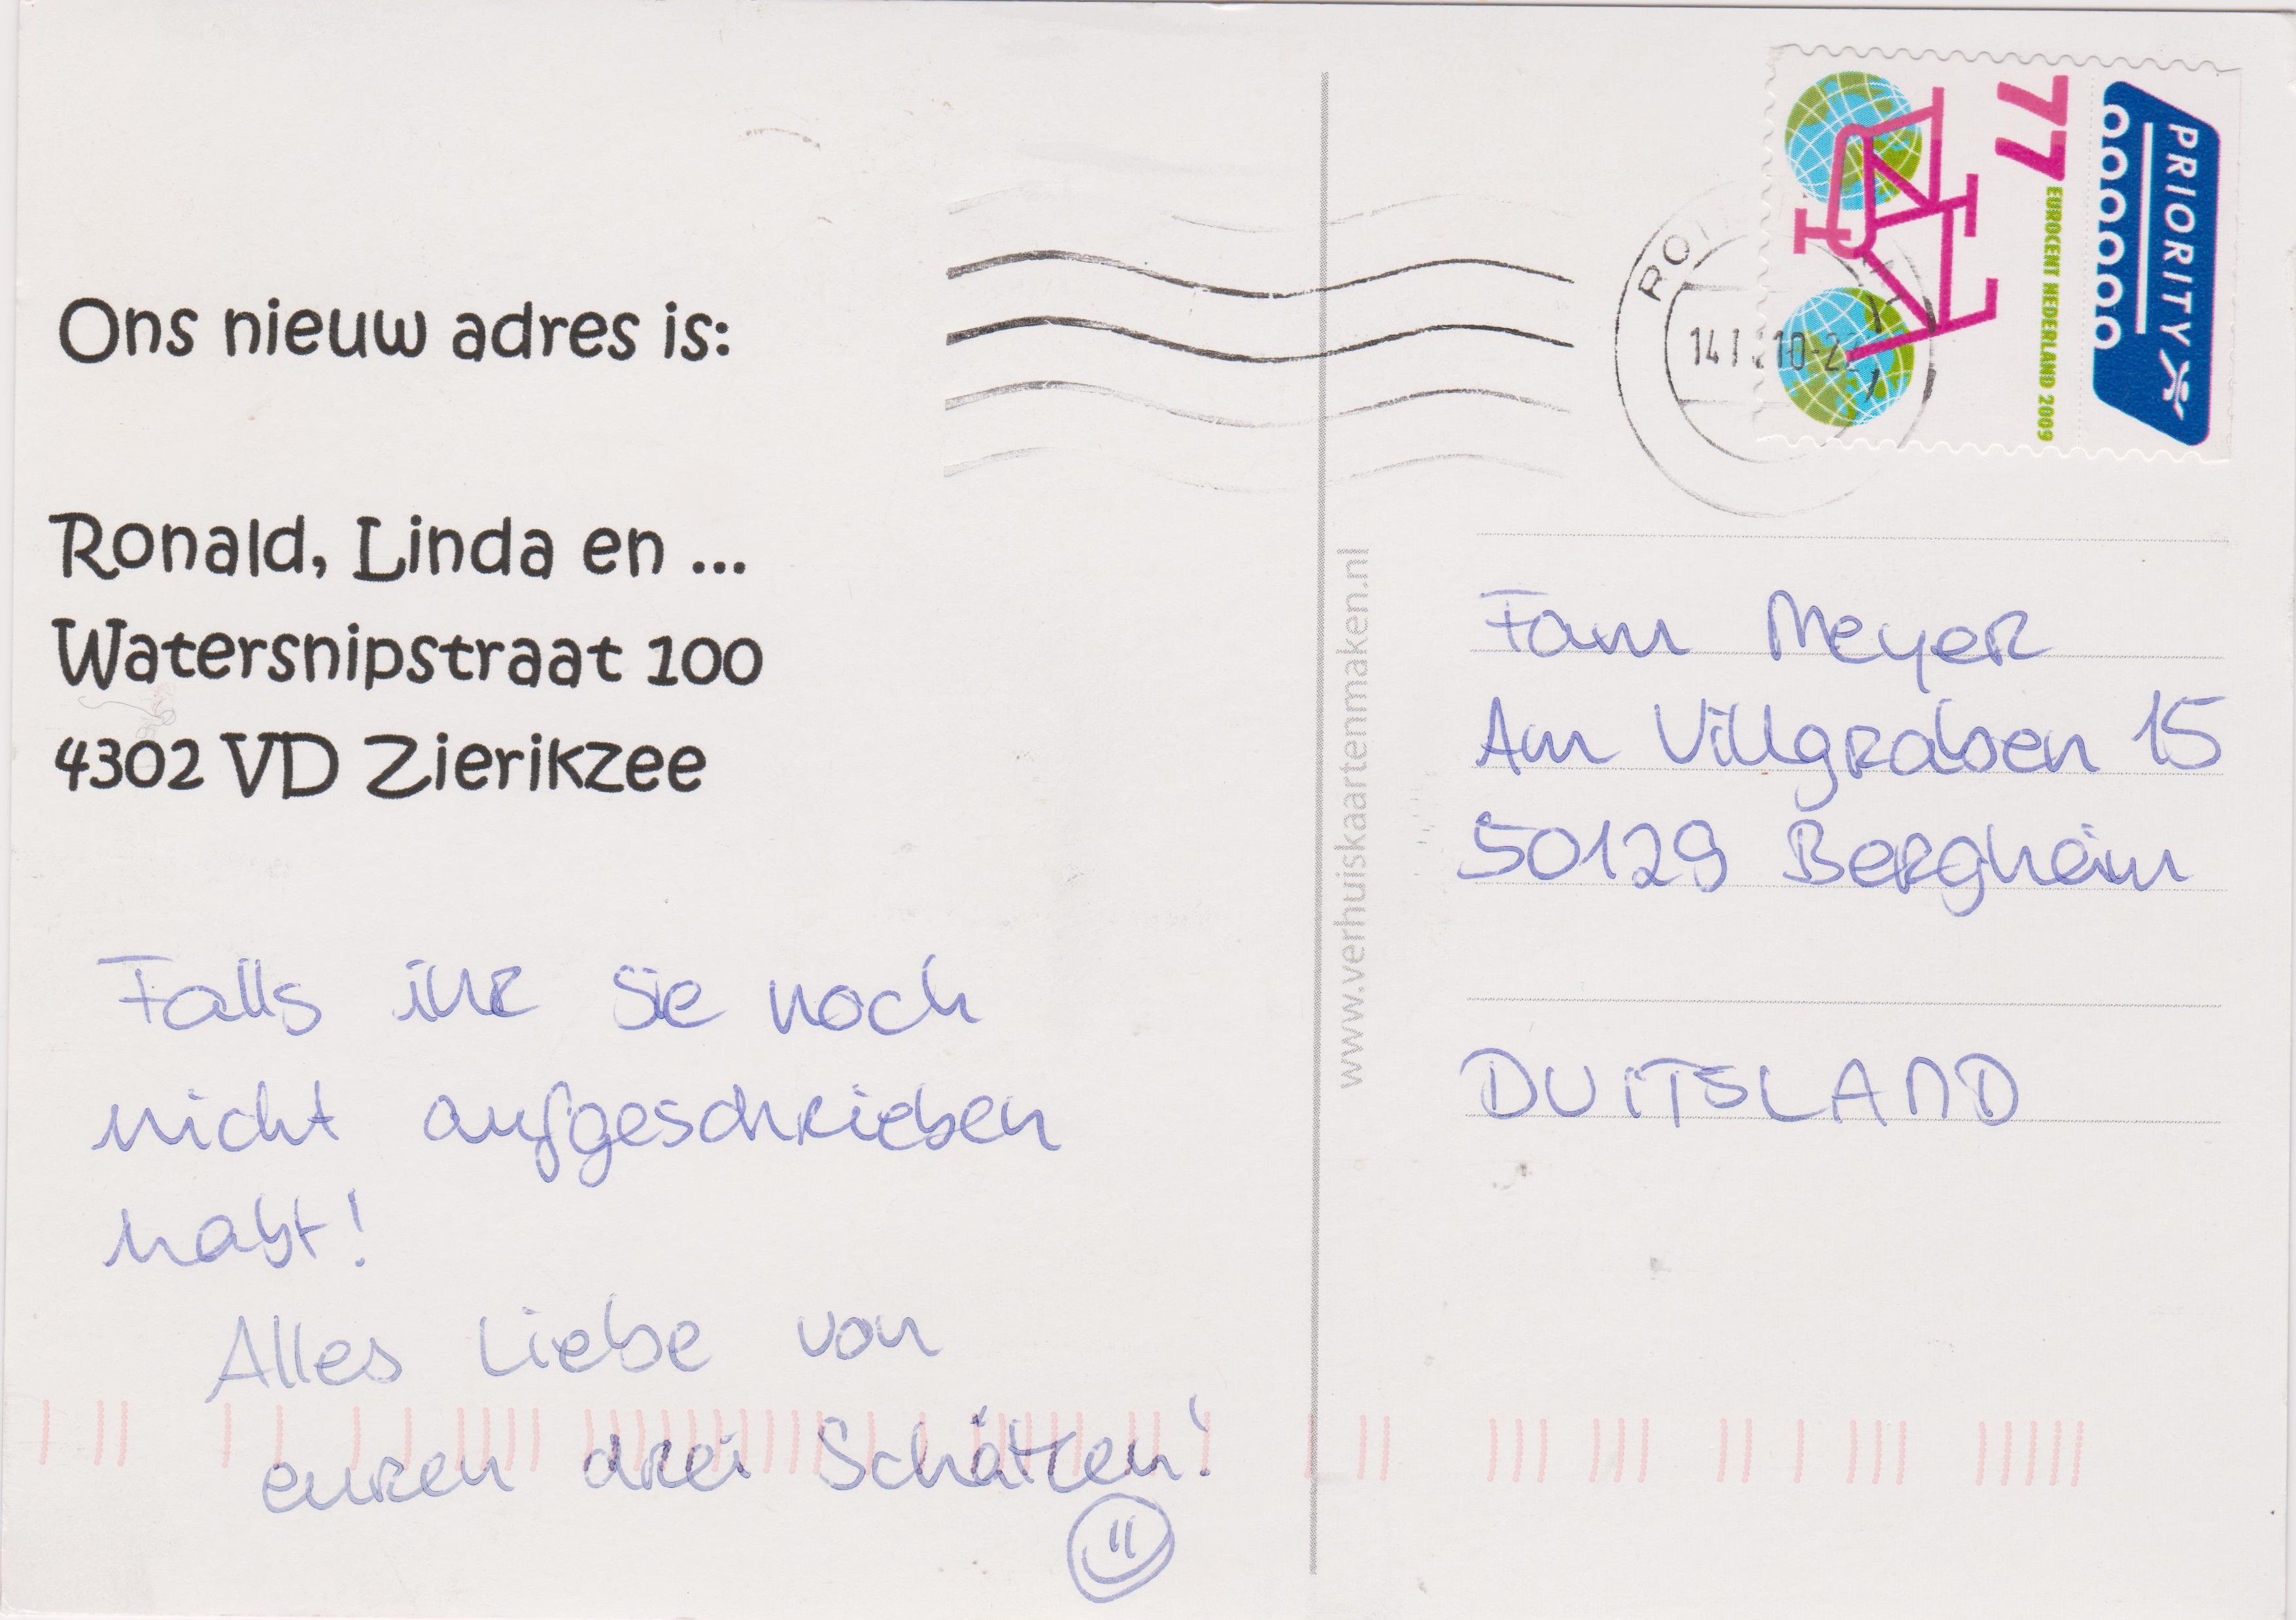 Ons nieuw adres is:
Ronald, Linda en ...
Watersnipstraat 100
4302 VD Zierikzee
Falls ihr sie noch
nicht aufgeschrieben
habt!
Alles Liebe von
euren drei Schätzen!
www.verhuiskaartenmaken.nl
PRIORITY
77
EUROCENT NEDERLAND 2009
Fam Meyer
Am Villgraben 15
50129 Bergheim
DUITSLAND